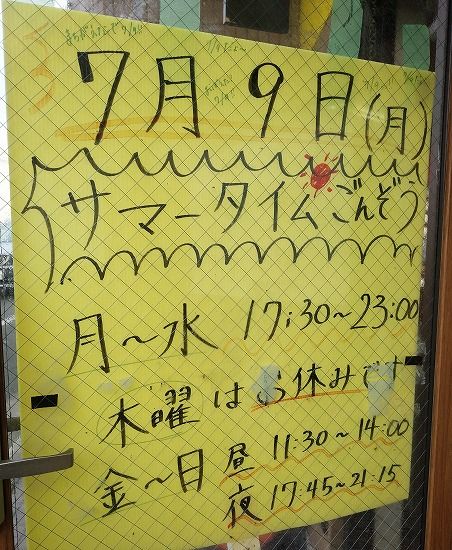 7月9日(月)
サマータイムごんぞう
月～水 17:30～23:00
木曜はお休みです
金～日 昼 11:30～14:00
夜 17:45～21:15